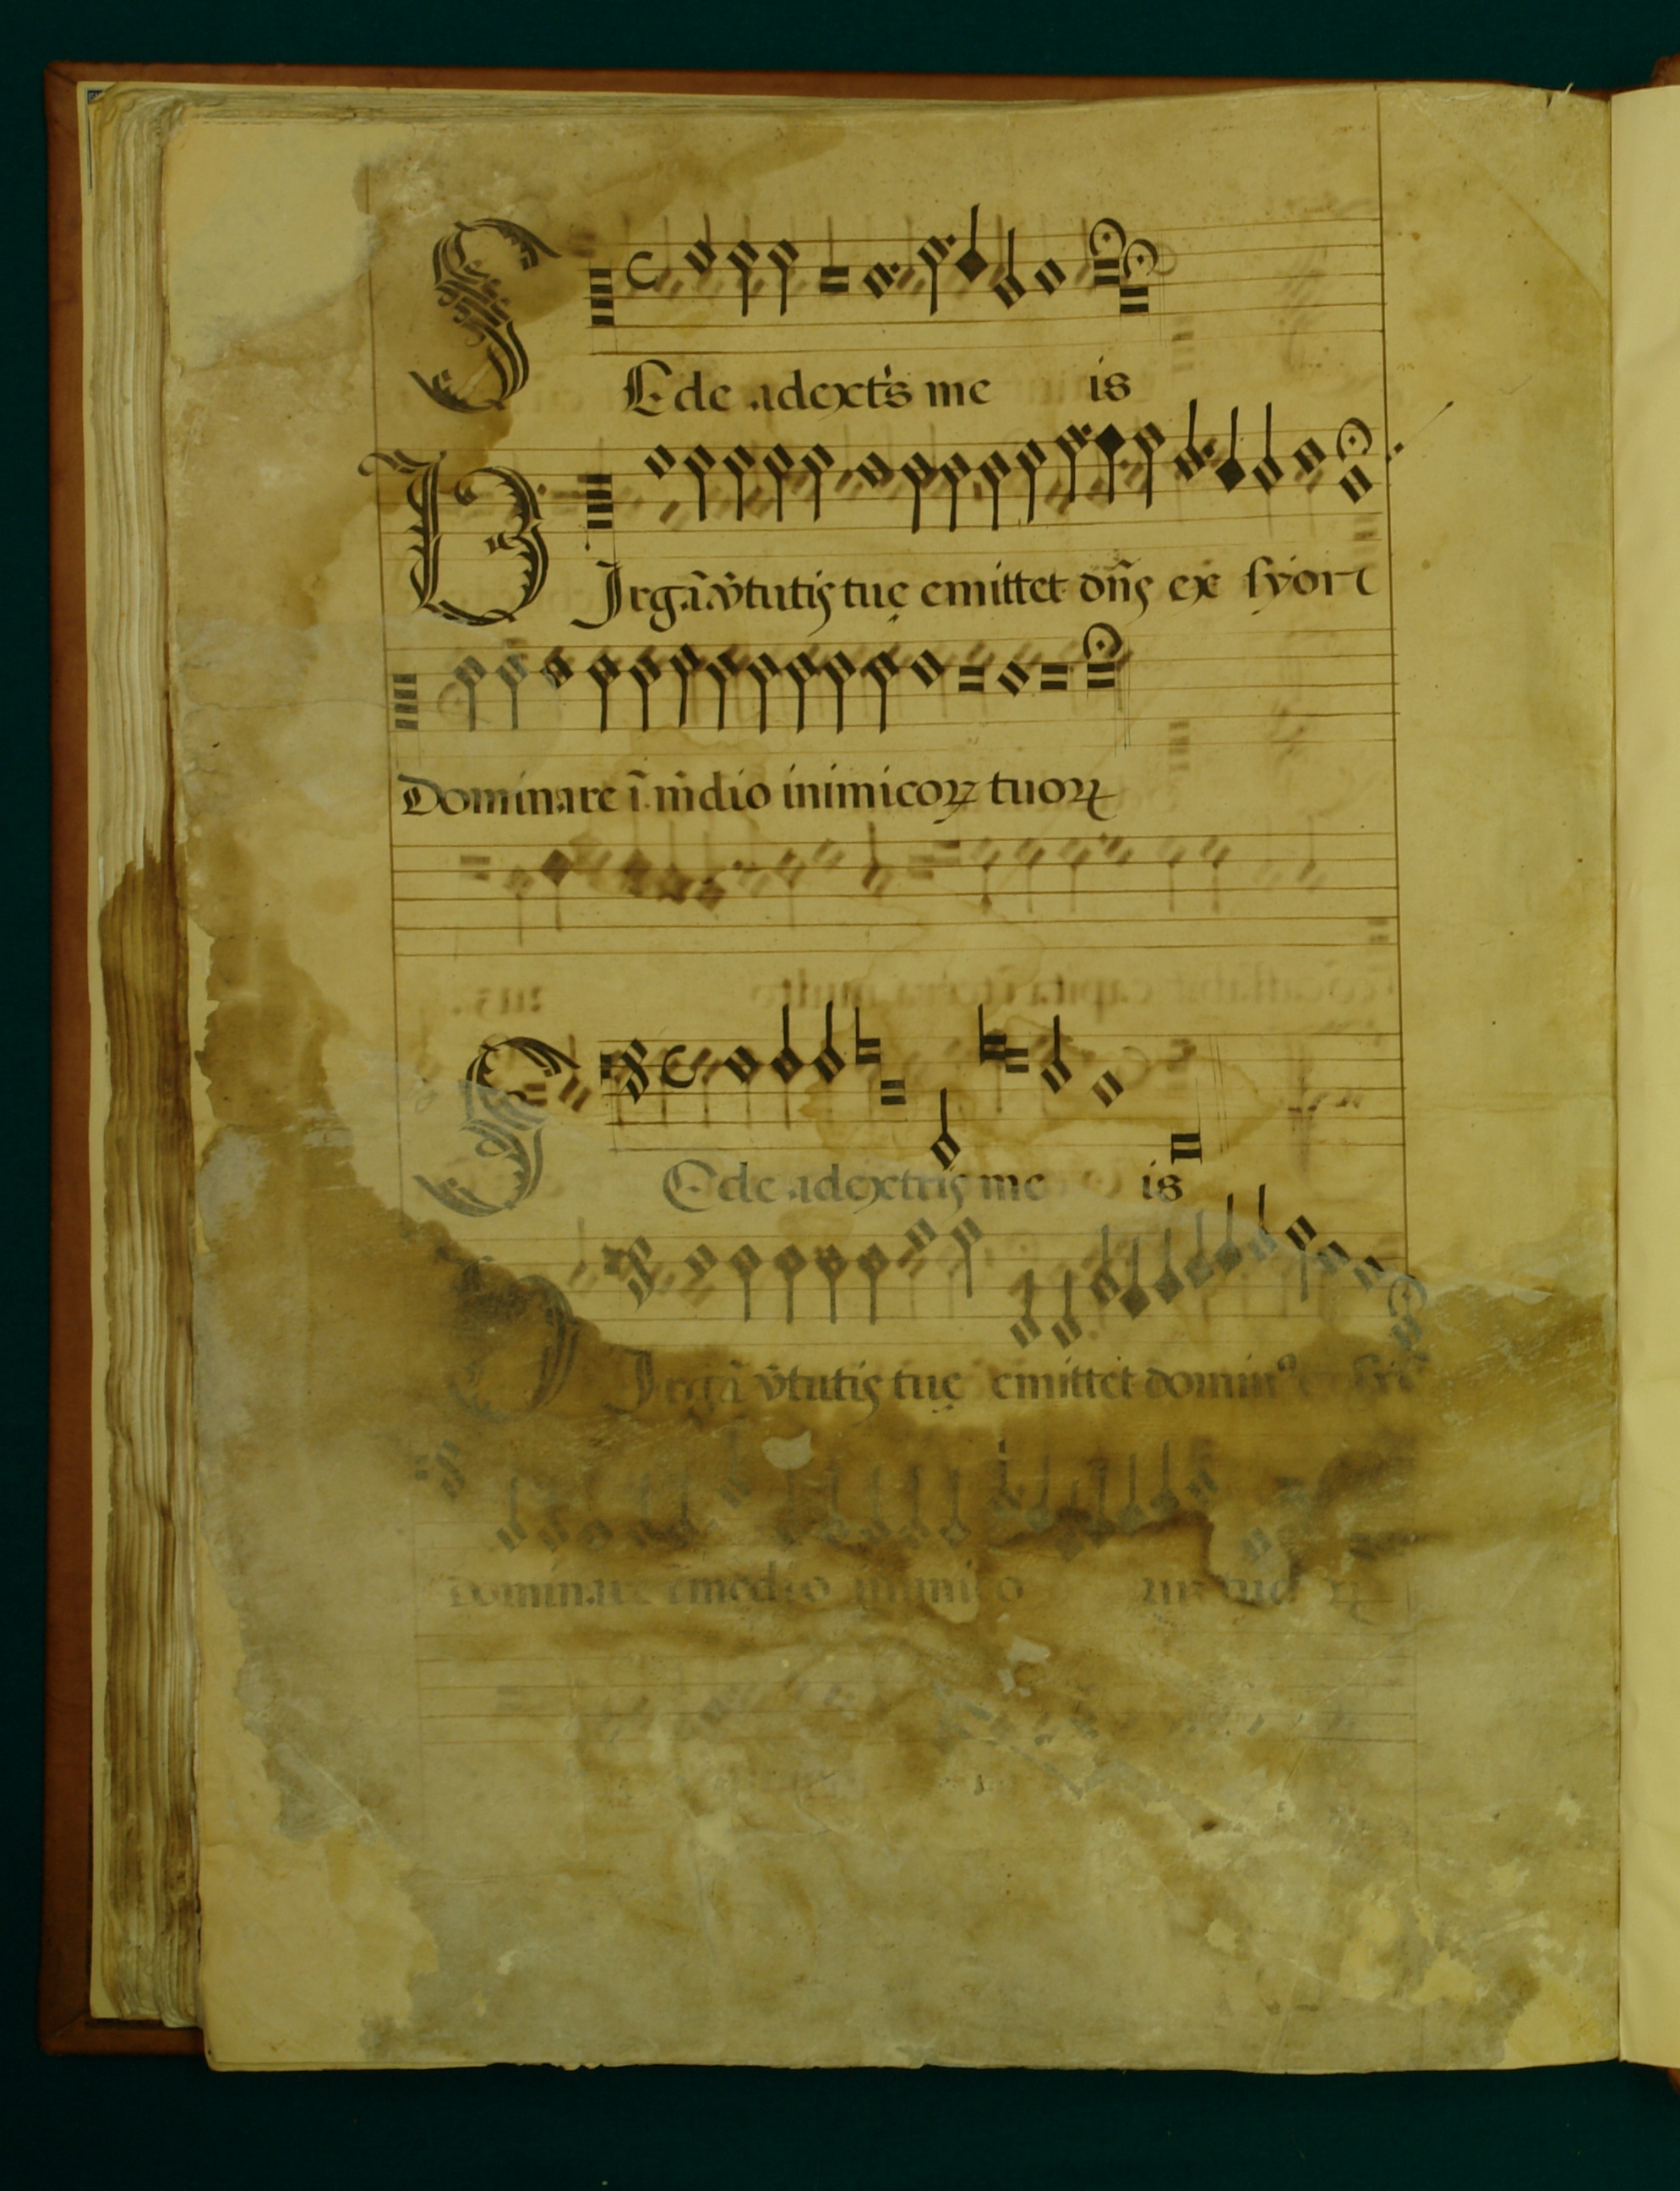 SEde adext's me is
VIrgã v̓tutis tuę emittet dñs ex syon
Dominare ĩ m̃dio inimicoꝝ tuoꝝ
SEde adextris me is
VIrgã v̓tutis tuę emittet dominꝰ
Dominare ĩ medio inimico